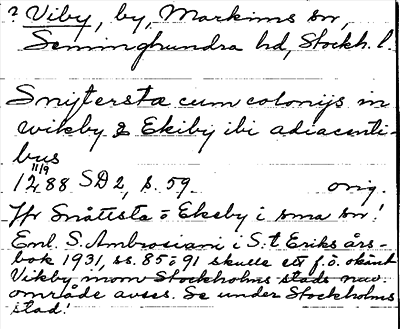 ? Viby, by, Markims sn,
Seminghundra hd, Stockh. l.
Snijtersta cum colonijs in
wikby & Ekiby ibi adiacenti-
bus
11/9
1288 SD 2, s. 59 orig.
Jfr Snåttsta o Ekeby i sma sn!
Enl. S. Ambrosiani i S:t Eriks års-
bok 1931, ss. 85 o 91 skulle ett f.ö. okänt
Vikby inom Stockholms stads nuv.
område avses. Se under Stockholms
stad!